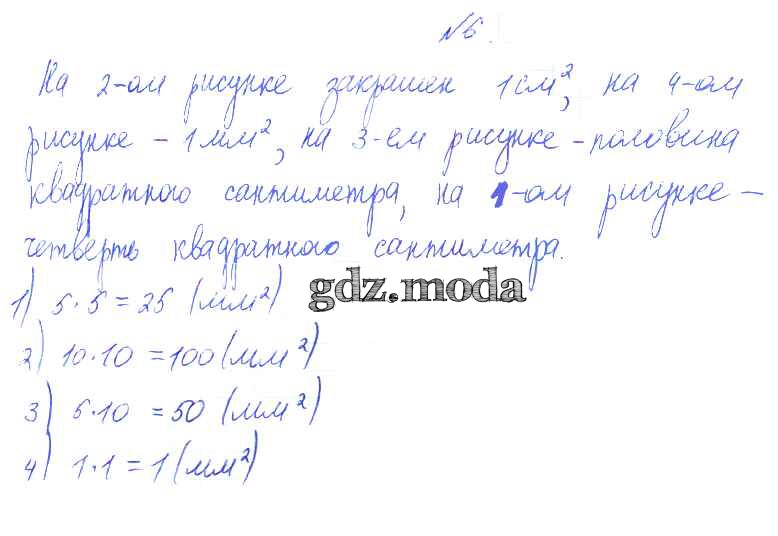 №6.
На 2-ом рисунке закрашен 1см², на 4-ом
рисунке - 1мм², на 3-ем рисунке - половина
квадратного сантиметра, на 1-ом рисунке -
четверть квадратного сантиметра.
1) 5·5=25 (мм²)
gdz.moda
2) 10·10=100(мм²)
3) 5·10=50 (мм²)
4) 1·1=1(мм²)